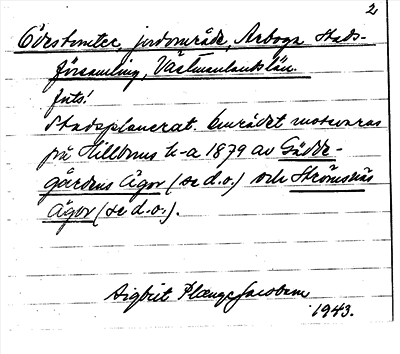 2
Ödestomter, jordområde, Arboga stads-
församling, Västmanlands län.
Ints!
Stadsplanerat. Området motsvaras
på Hillboms k-a 1879 av Gädde-
gårdens Ägor (se d.o.) och Strömsnäs
Ägor (se d.o.).
Sigbrit Plænge Jacobson
1943.